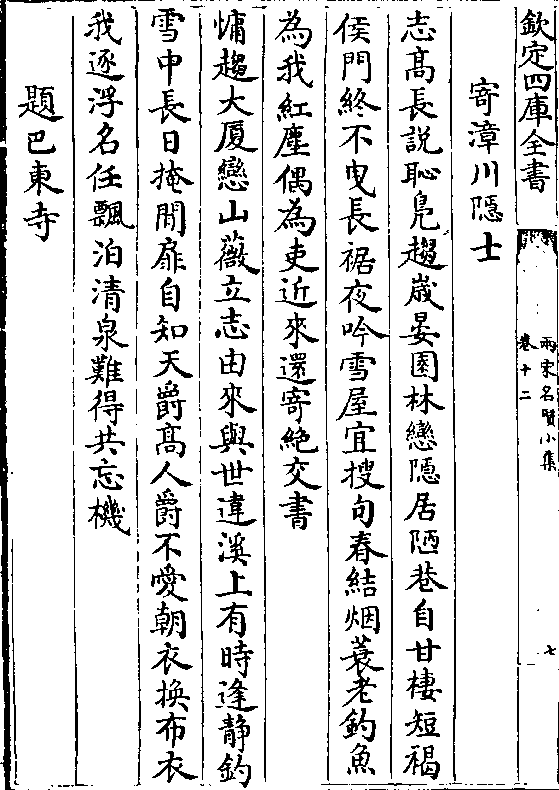 欽定四庫全書
兩宋名賢小集
卷十二
七
寄漳川隱士
志髙長說恥鳧趨嵗晏園林戀隱居陋巷自甘棲短褐
侯門終不曳長裾夜吟雪屋宜搜句春結烟蓑老釣魚
為我紅塵偶為吏近來還寄絶交書
慵趨大厦戀山薇立志由來與世違溪上有時逢静釣
雪中長日掩閒扉自知天爵髙人爵不愛朝衣換布衣
我逐浮名任飄泊清泉難得共忘機
題巴東寺